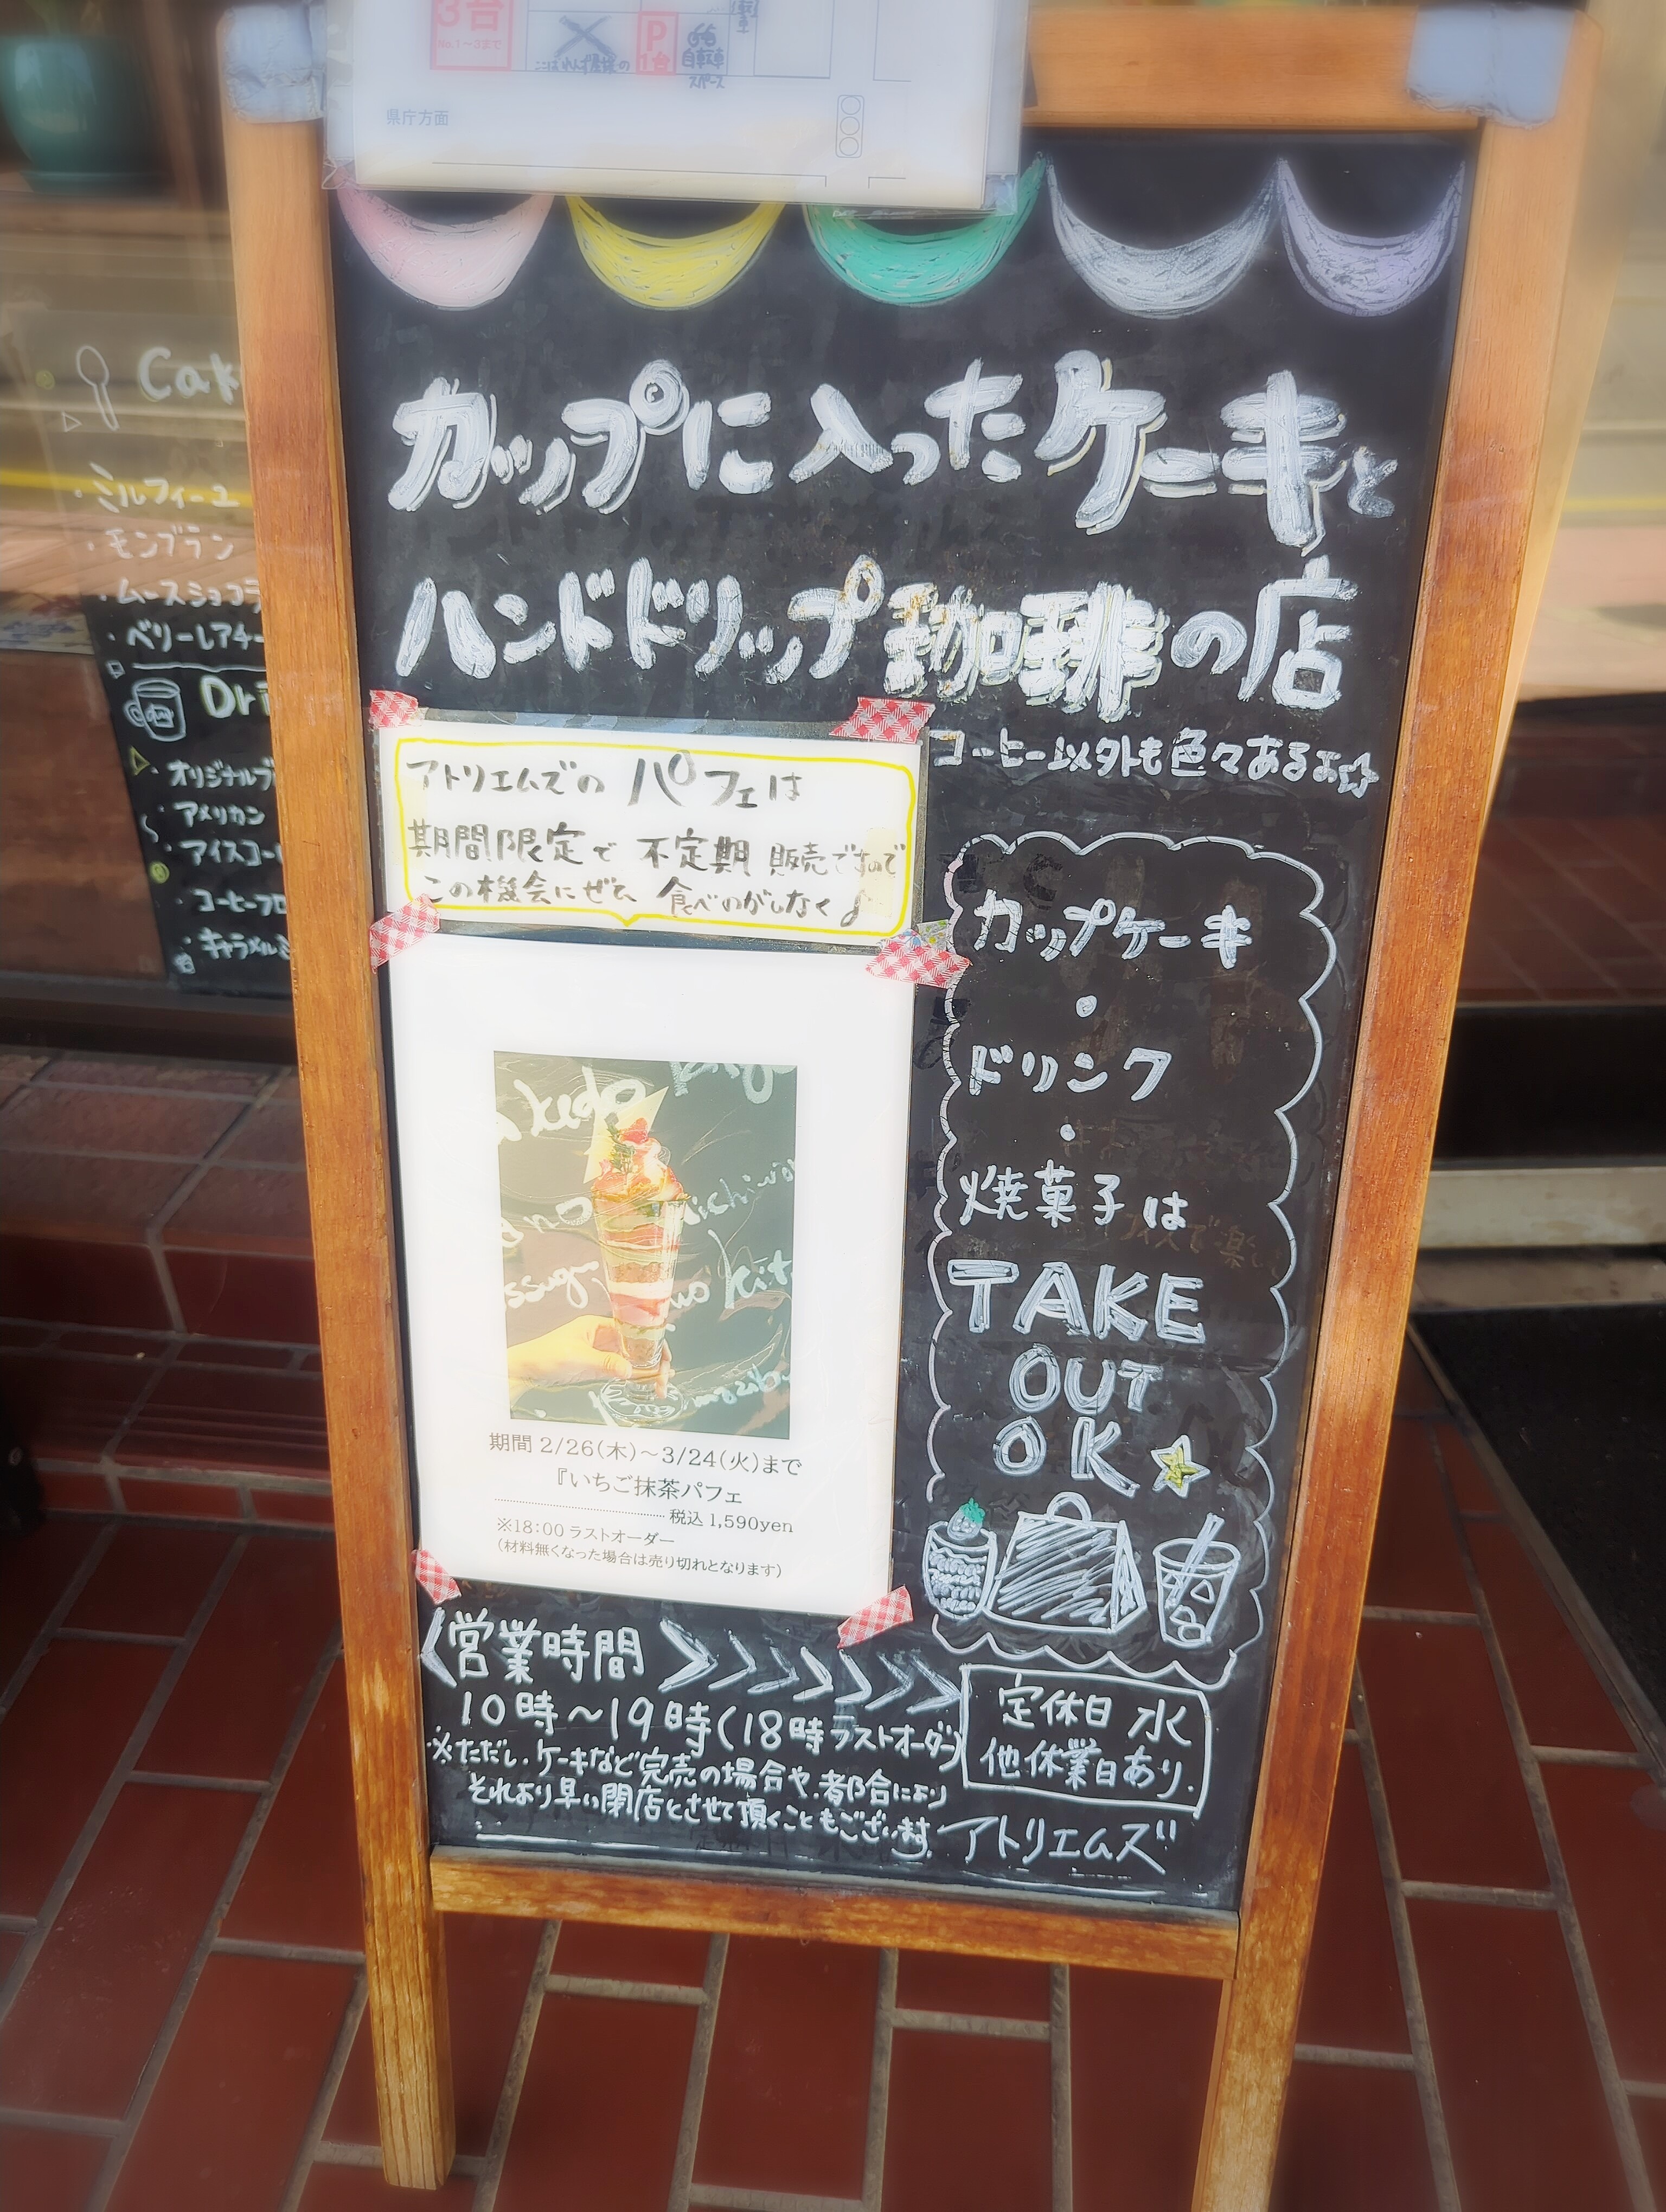 3台
No.1～3まで
P
1台
自転車
スペース
県庁方面
カップに入ったケーキと
ハンドドリップ珈琲の店
コーヒー以外も色々あるよ☆
アトリエムズの パフェは
期間限定で 不定期 販売ですので
この機会にぜひ 食べのがしなく♪
カップケーキ
・
ドリンク
・
焼菓子は
TAKE
OUT
OK
期間 2/26(木)～3/24(火)まで
『いちご抹茶パフェ
税込 1,590yen
※18:00 ラストオーダー
(材料無くなった場合は売り切れとなります)
営業時間
10時～19時(18時ラストオーダー)
※ただし、ケーキなど完売の場合や、都合により
それより早い閉店とさせて頂くこともございます。
定休日 水
他休業日あり.
アトリエムズ
Cak
・ミルフィーユ
・モンブラン
・ムースショコラ
・ベリーレアチー
Dri
・オリジナルブ
・アメリカン
・アイスコー
・コーヒーフロ
・キャラメルミ